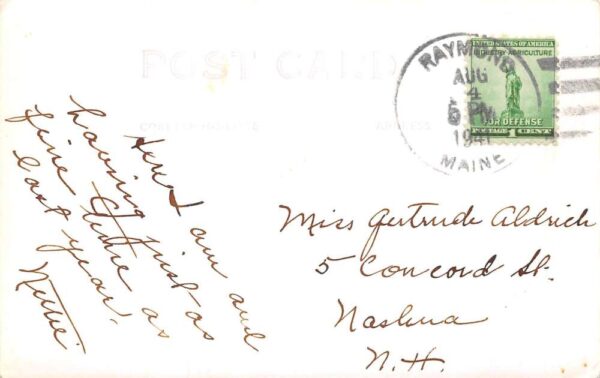 POST CARD
CORRESPONDENCE
ADDRESS
RAYMOND
AUG
4
5 PM
1941
MAINE
UNITED STATES OF AMERICA
INDUSTRY-AGRICULTURE
FOR DEFENSE
POSTAGE 1 CENT
Here I am and
having just as
fine time as
last year.
Miss Gertrude Aldrich
5 Concord St.
Nashua
N.H.